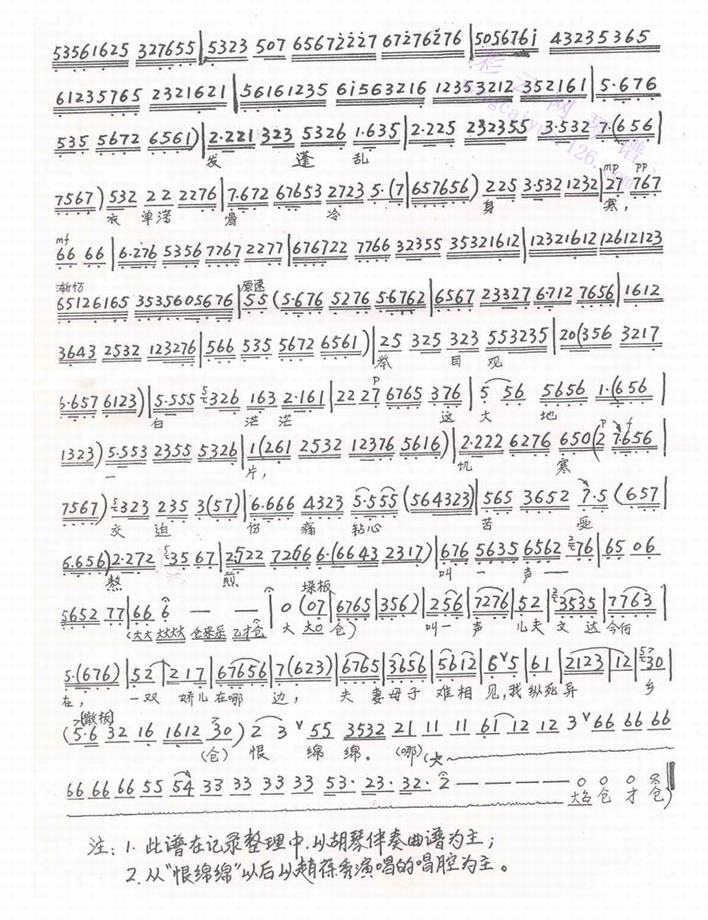 53561625 327655|5323 507 65672227 67276276|505676i 43235365
61235765 2321621|56161235 6i563216 12353212 352161|5·676
535 5672 6561)|2·221 323 5326 1·635|2·225 232355 3·532 7·(656|
发 蓬 乱
mp pp
7567)532 22 2276|7·672 67653 2723 5·(7|657656) 225 3·532 1232|27 767
衣 单 骨 冷 身 寒,
mf
66 66|6·276 5356 7767 2277|676722 7766 32355 35321612|12321612 12612123
渐慢 原速
65126165 3535605676|55 (5·676 5276 5·6762|6567 23327 6·712 7656|1612
3643 2532 123276|566 535 5672 6561)|25 325 323 553235|20(356 3217
举 目 观
p
6·657 6123)|5·555 326 163 2·161|2227 6765 376|5 56 5656 1·(656
白 茫 茫 这 大 地
1323)5·553 2355 5326|1(261 2532 12376 5616)|2·222 6276 650(2 7·656
一 片, 饥 寒
7567) 323 235 3(57)|6·666 4323 5·555 (564323)|565 3652 7·5 (657
交 迫 伤 痛 钻心 苦 受
6·656)2·272 35 67|2722 72766 6·(6643 2317)|676 5635 6562 76|65 06
熬 煎 叫 一 声
垛板
5652 77|66 6 — —|0 (07|6765|356)|256|7276|52|3535|7763
大 大0 仓) 叫一 声 儿夫 文 达 今何
5·(676)|52|217|67656|7(623)|6765|3656|5612|6 5|61|2123|12|30
在, 一双 娇儿在哪 边, 夫 妻母子 难相 见,我 纵死异 乡
(散板)
(5·6 32 16 1612 30) 2 3 55 3532 21 11 11 61 12 12 3 66 66 66
(仓) 恨 绵 绵。 (哪)(大
66 66 66 55 54 33 33 33 33 53· 23· 32· 2 — — — — — 0 0 0 0
仓 才 仓)
注: 1. 此谱在记录整理中,以胡琴伴奏曲谱为主;
2. 从“恨绵绵”以后以赵葆秀演唱的唱腔为主。